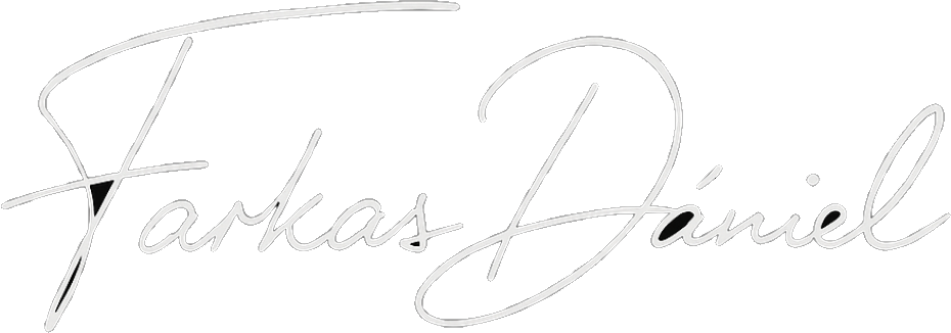 Farkas Dániel